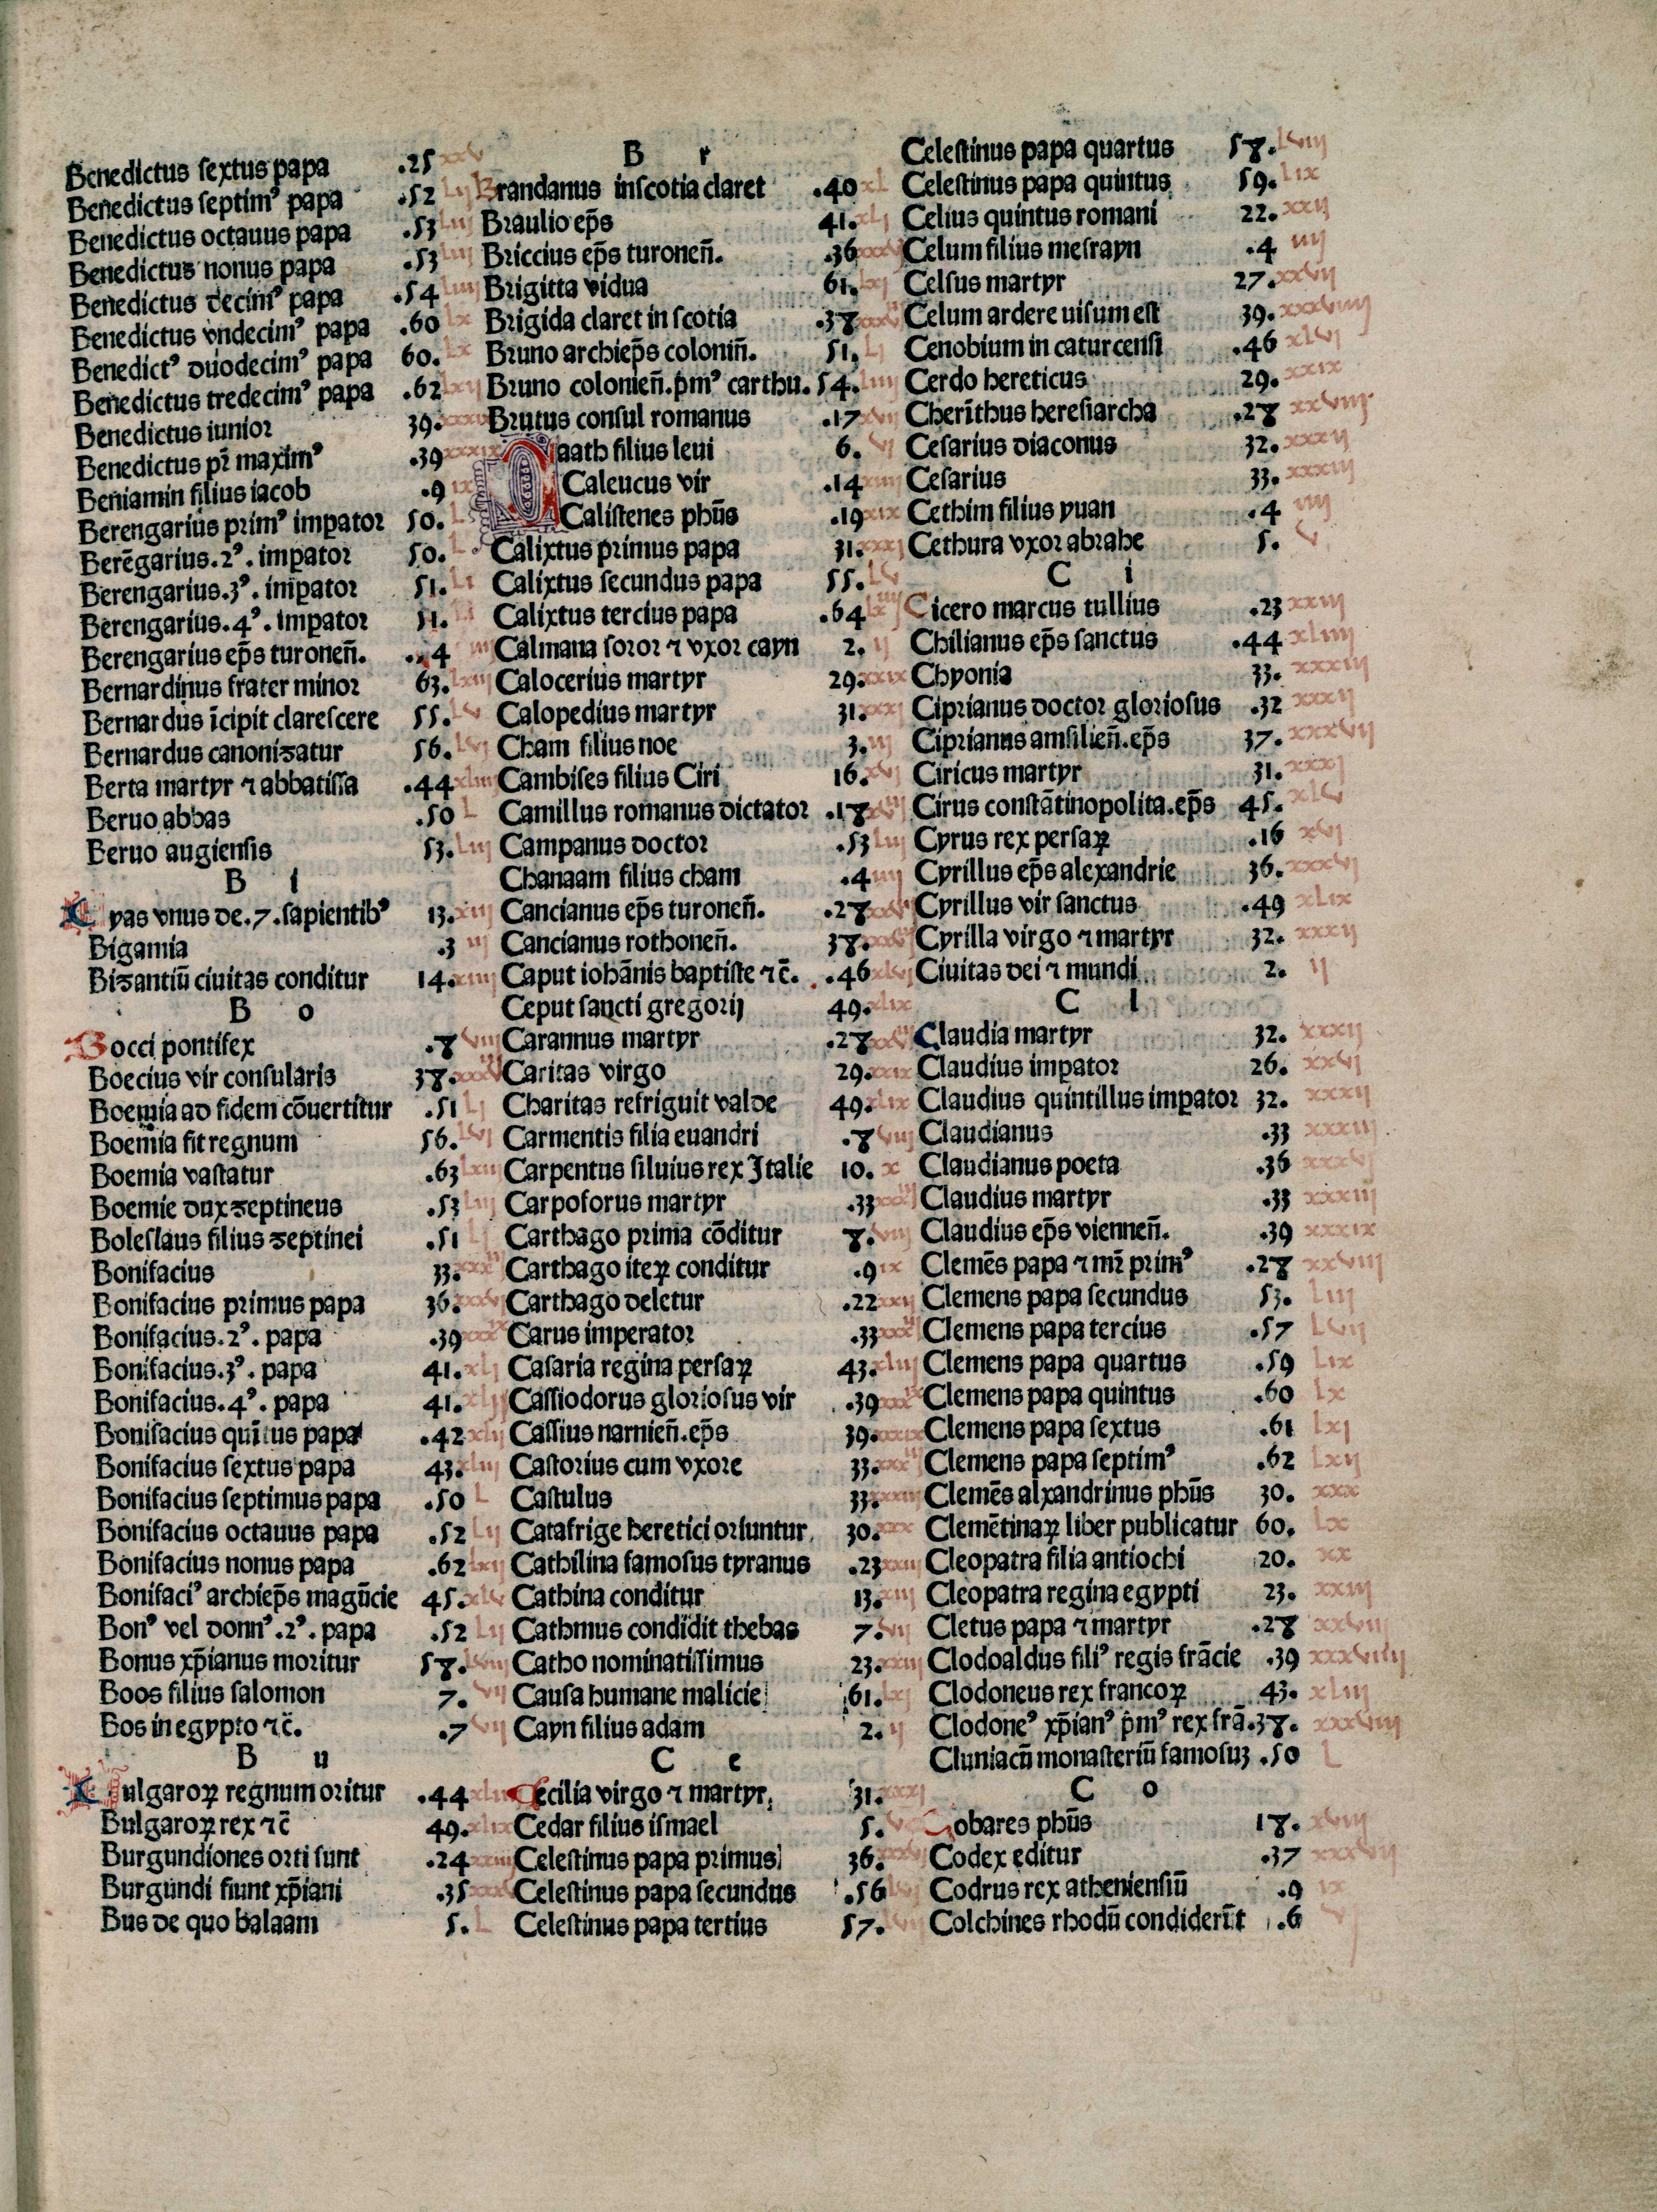 Benedictus ſextus papa .25 xxv
Benedictus ſeptimꝰ papa .52 Lij
Benedictus octauus papa .53 Liij
Benedictus nonus papa .53 Liij
Benedictus decimꝰ papa .54 Liiij
Benedictus vndecimꝰ papa .60 Lx
Benedictꝰ duodecimꝰ papa 60. Lx
Benedictus tredecimꝰ papa .62 Lxij
Benedictus iunior 39.
Benedictus pr̄ maximꝰ .39 xxxix
Beniamin filius iacob .9 ix
Berengarius primꝰ imꝑator 50. L
Berēgarius.2ꝰ. imꝑator 50. L
Berengarius.3ꝰ. imꝑator 51. Li
Berengarius.4ꝰ. imꝑator 51. Li
Berengarius ep̄s turonen̄. 4
Bernardinus frater minor 63. Lxiij
Bernardus īcipit clareſcere 55. Lv
Bernardus canoniзatur 56. Lvj
Berta martyr ⁊ abbatiſſa .44 xliiij
Beruo abbas .50 L
Beruo augienſis 53. Liij
B i
yas vnus de.7.ſapientibꝰ 13. xiij
Bigamia .3 iij
Biзantiū ciuitas conditur 14. xiiij
B o
Bocci pontifex .8 viij
Boecius vir conſularis 38.
Boemia ad fidem cōuertitur .51 Lj
Boemia fit regnum 56. Lvj
Boemia vaſtatur .63 Lxiij
Boemie dux зeptineus .53 Liij
Boleſlaus filius зeptinei .51 Lj
Bonifacius 33.
Bonifacius primus papa 36. xxxvj
Bonifacius.2ꝰ. papa .39
Bonifacius.3ꝰ. papa 41. xlj
Bonifacius.4ꝰ. papa 41. xlj
Bonifacius quītus papa .42 xlij
Bonifacius ſextus papa 43. xliij
Bonifacius ſeptimus papa .50 L
Bonifacius octauus papa .52 Lij
Bonifacius nonus papa .62 Lxij
Bonifaciꝰ archiep̄s magūcie 45. xlv
Bonꝰ vel donnꝰ.2ꝰ. papa .52 Lij
Bonus xp̄ianus moritur 58. Lviij
Boos filius ſalomon 7. vij
Bos in egypto ⁊c̄. .7 vij
B u
Bulgaroꝝ regnum oritur .44 xliiij
Bulgaroꝝ rex ⁊c̄ 49. xlix
Burgundiones orti ſunt .24 xxiiij
Burgundi fiunt xp̄iani .35 xxxv
Bus de quo balaam 5.
B r
Brandanus inſcotia claret .40 xl
Braulio ep̄s 41. xlj
Briccius ep̄s turonen̄. .36 xxxvj
Brigitta vidua 61. Lxj
Brigida claret in ſcotia .38
Bruno archiep̄s colonin̄. 51. Lj
Bruno colonien̄.p̄mꝰ carthu. 54. Liiij
Brutus conſul romanus .17 xvij
Caath filius leui 6. vj
Caleucus vir .14 xiiij
Caliſtenes ph̄us .19 xix
Calixtus primus papa 31. xxxj
Calixtus ſecundus papa 55. Lv
Calixtus tercius papa .64
Calmana ſoror ⁊ vxor cayn 2. ij
Calocerius martyr 29. xxix
Calopedius martyr 31. xxxj
Cham filius noe 3. iij
Cambiſes filius Ciri 16. xvj
Camillus romanus dictator .18
Campanus doctor .53 Liij
Chanaam filius cham .4 iiij
Cancianus ep̄s turonen̄. .28
Cancianus rothonen̄. 38.
Caput iohānis baptiſte ⁊c̄. .46 xlvj
Ceput ſancti gregorij 49. xlix
Carannus martyr .28
Caritas virgo 29. xxix
Charitas refriguit valde 49. xlix
Carmentis filia euandri .8 viij
Carpentus ſiluius rex Italie 10. x
Carpoforus martyr .33
Carthago prima cōditur 8. viij
Carthago iteꝝ conditur .9 ix
Carthago deletur .22 xxij
Carus imperator .33
Caſaria regina perſaꝝ 43. xliij
Caſſiodorus glorioſus vir .39
Caſſius narnien̄.ep̄s 39. xxxix
Caſtorius cum vxore 33.
Caſtulus 33. xxxiij
Catafrige heretici oriuntur 30. xxx
Cathilina famoſus tyranus .23 xxiij
Cathina conditur 13. xiij
Cathmus condidit thebas 7. vij
Catho nominatiſſimus 23. xxiij
Cauſa humane malicie 61. Lxj
Cayn filius adam 2. ij
C e
Cecilia virgo ⁊ martyr. 31. xxxj
Cedar filius iſmael 5. v
Celeſtinus papa primus 36. xxxvj
Celeſtinus papa ſecundus .56 Lvj
Celeſtinus papa tertius 57. Lvij
Celeſtinus papa quartus 58. Lviij
Celeſtinus papa quintus 59. Lix
Celius quintus romani 22. xxij
Celum filius meſrayn .4 iiij
Celſus martyr 27. xxvij
Celum ardere uiſum eſt 39. xxxviiij
Cenobium in caturcenſi .46 xlvj
Cerdo hereticus 29. xxix
Cherīthus hereſiarcha .28 xxviij
Ceſarius diaconus 32. xxxij
Ceſarius 33. xxxiij
Cethim filius yuan .4 iiij
Cethura vxor abrahe 5. v
C i
Cicero marcus tullius .23 xxiij
Chilianus ep̄s ſanctus .44 xliiij
Chyonia 33. xxxiij
Ciprianus doctor glorioſus .32 xxxij
Ciprianus amſilien̄.ep̄s 37. xxxvij
Ciricus martyr 31. xxxj
Cirus conſtātinopolita.ep̄s 45. xlv
Cyrus rex perſaꝝ .16 xvj
Cyrillus ep̄s alexandrie 36. xxxvj
Cyrillus vir ſanctus .49 xlix
Cyrilla virgo ⁊ martyr 32. xxxij
Ciuitas dei ⁊ mundi 2. ij
C l
Claudia martyr 32. xxxij
Claudius imꝑator 26. xxvj
Claudius quintillus imꝑator 32. xxxij
Claudianus .33 xxxiij
Claudianus poeta .36 xxxvj
Claudius martyr .33 xxxiij
Claudius ep̄s viennen̄. .39 xxxix
Clemēs papa ⁊ mr̄ primꝰ .28 xxviij
Clemens papa ſecundus 53. Liij
Clemens papa tercius .57 Lvij
Clemens papa quartus .59 Lix
Clemens papa quintus .60 Lx
Clemens papa ſextus .61 Lxj
Clemens papa ſeptimꝰ .62 Lxij
Clemēs alxandrinus ph̄us 30. xxx
Clemētinaꝝ liber publicatur 60. Lx
Cleopatra filia antiochi 20. xx
Cleopatra regina egypti 23. xxiij
Cletus papa ⁊ martyr .28 xxviij
Clodoaldus filiꝰ regis frācie .39 xxxviiij
Clodoneus rex francoꝝ 43. xliij
Clodoneꝰ xp̄ianꝰ p̄mꝰ rex frā.38. xxxviij
Cluniacū monaſteriū famoſuꝫ .50 L
C o
Cobares ph̄us 18. xviij
Codex editur .37 xxxvij
Codrus rex athenienſiū .9 ix
Colchines rhodū condiderūt .6 v